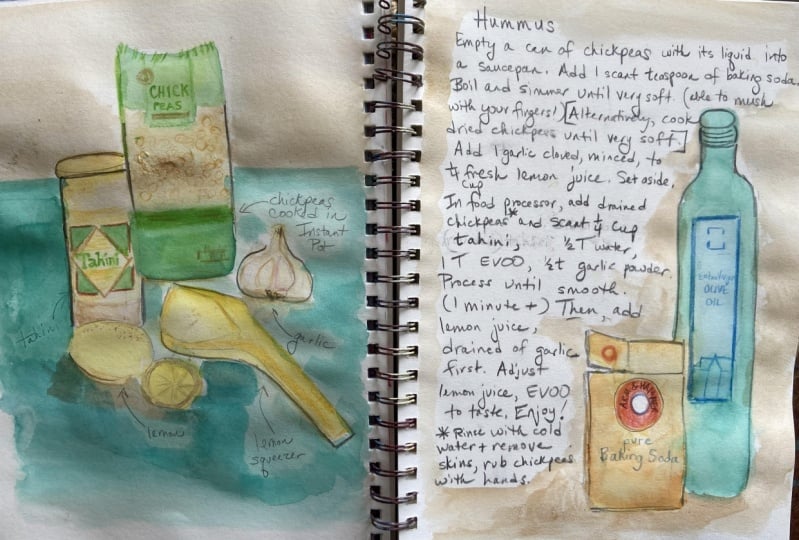 CHICK
PEAS
Tahini
chickpeas
cooked in
Instant
Pot
garlic
tahini
lemon
lemon
squeezer
Hummus
Empty a can of chickpeas with its liquid into
a saucepan. Add 1 scant teaspoon of baking soda.
Boil and simmer until very soft. (able to mush
with your fingers!) [Alternatively, cook
dried chickpeas until very soft.]
Add 1 garlic cloved, minced, to
¼ fresh lemon juice. Set aside.
cup
In food processor, add drained
chickpeas* and scant ¼ cup
tahini, ½T water,
1 T EVOO, ½t garlic powder.
Process until smooth.
(1 minute +) Then, add
lemon juice,
drained of garlic
first. Adjust
lemon juice, EVOO
to taste. Enjoy!
* Rince with cold
water + remove
skins, rub chickpeas
with hands.
Extra Virgin
OLIVE
OIL
ARM & HAMMER
pure
Baking Soda